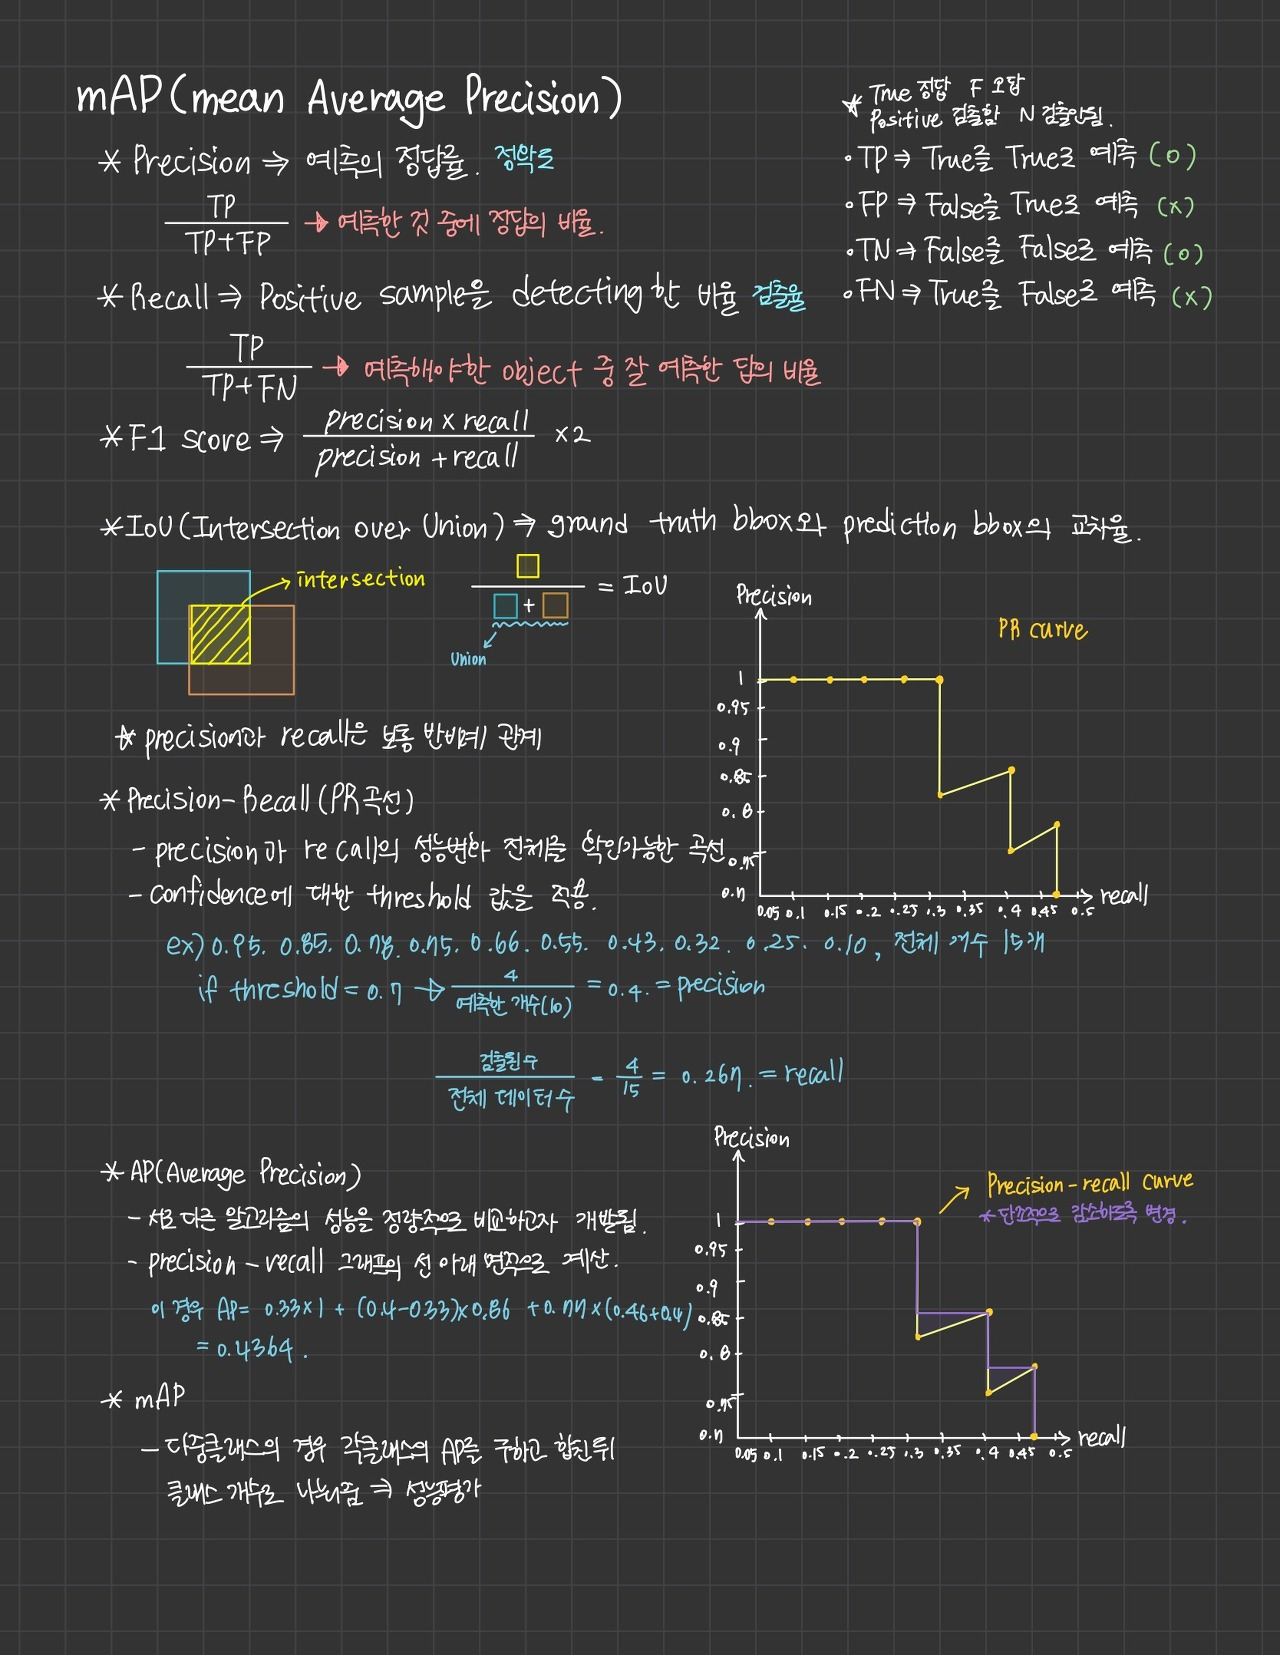 mAP(mean Average Precision)
* Precision ⇒ 예측의 정답률. 정확도
TP
TP+FP
→ 예측한 것 중에 정답의 비율.
* Recall ⇒ Positive sample을 detecting한 비율 검출율
TP
TP+FN
→ 예측해야한 object 중 잘 예측한 답의 비율
* F1 score ⇒
precision x recall
precision + recall
x2
* True 정답 F 오답
Positive 검출함 N 검출안됨.
• TP ⇒ True를 True로 예측 (O)
• FP ⇒ False를 True로 예측 (x)
• TN ⇒ False를 False로 예측 (O)
• FN ⇒ True를 False로 예측 (x)
* IoU(Intersection over Union) ⇒ ground truth bbox와 prediction bbox의 교차율.
intersection
+
= IoU
Union
* precision과 recall은 보통 반비례 관계
* Precision-Recall(PR곡선)
- precision과 recall의 성능변화 전체를 확인가능한 곡선
- Confidence에 대한 threshold 값을 적용.
ex) 0.95. 0.85. 0.78. 0.75. 0.66. 0.55. 0.43. 0.32. 0.25. 0.10, 전체 개수 15개
if threshold = 0.7 →
4
예측한 개수(10)
= 0.4. = precision
검출된 수
전체 데이터 수
-
4
15
= 0.267. = recall
Precision
PR curve
1
0.95
0.9
0.85
0.8
0.75
0.7
0.05 0.1 0.15 0.2 0.25 0.3 0.35 0.4 0.45 0.5
recall
* AP(Average Precision)
- 서로 다른 알고리즘의 성능을 정량적으로 비교하고자 개발됨.
- precision-recall 그래프의 선 아래 면적으로 계산.
이 경우 AP= 0.33x1 + (0.4-0.33)x0.86 + 0.77x(0.46+0.4)
= 0.4364.
* mAP
- 다중클래스의 경우 각클래스의 AP를 구하고 합친뒤
클래스 개수로 나눠줌 ⇒ 성능평가
Precision
→ Precision-recall curve
* 단조적으로 감소하도록 변경.
1
0.95
0.9
0.85
0.8
0.75
0.7
0.05 0.1 0.15 0.2 0.25 0.3 0.35 0.4 0.45 0.5
recall